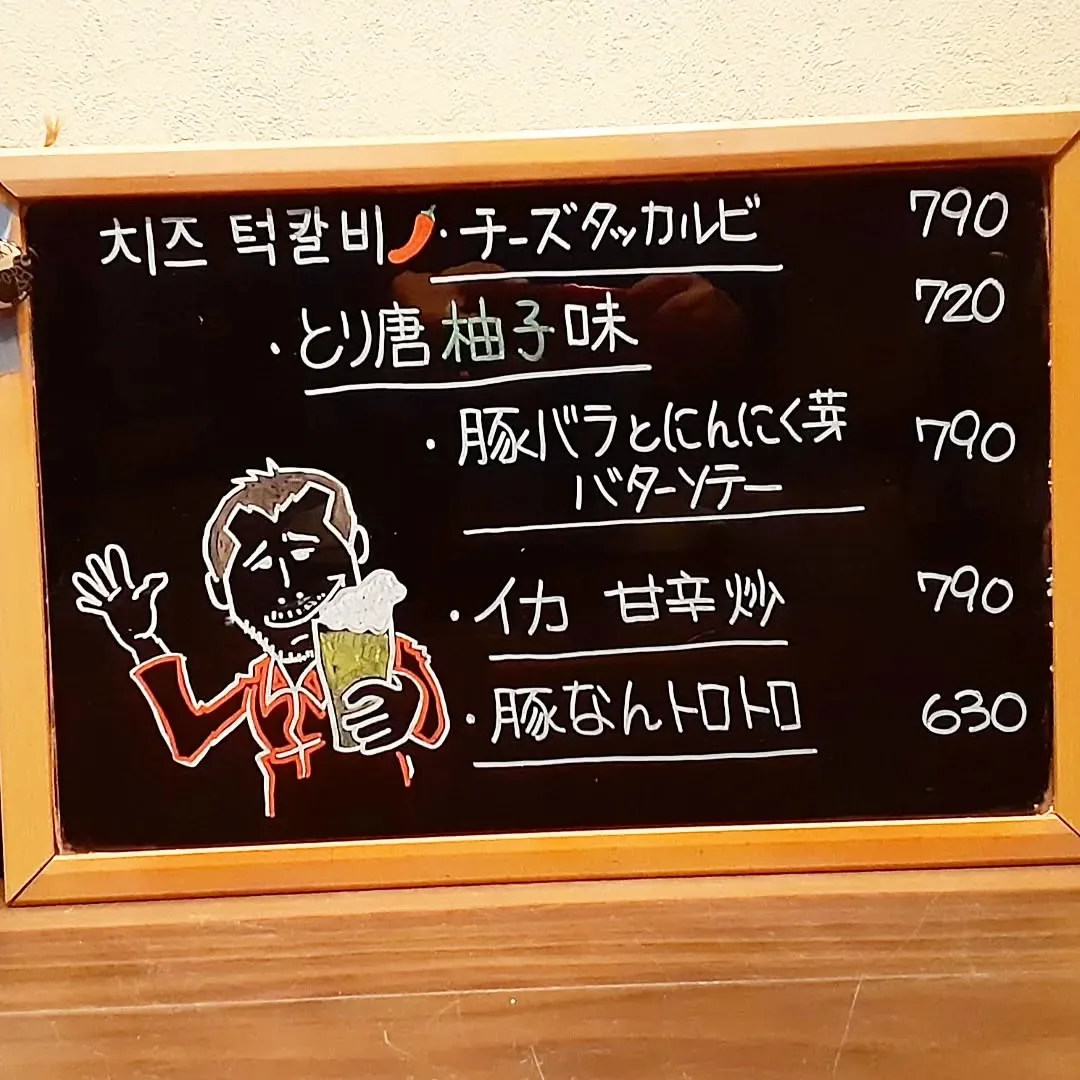 치즈 턱칼비・チーズタッカルビ 790
・とり唐柚子味 720
・豚バラとにんにく芽 790
バターソテー
・イカ 甘辛炒 790
・豚なんトロトロ 630